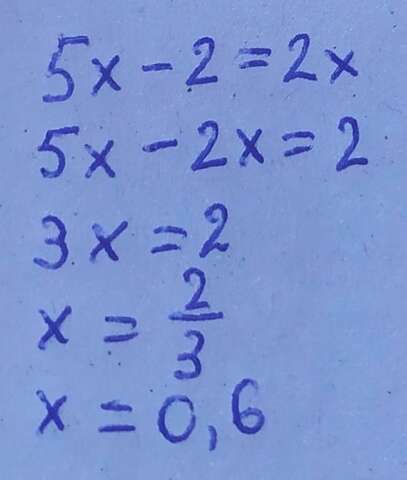 5x - 2 = 2x
5x - 2x = 2
3x = 2
x = 2/3
x = 0,6